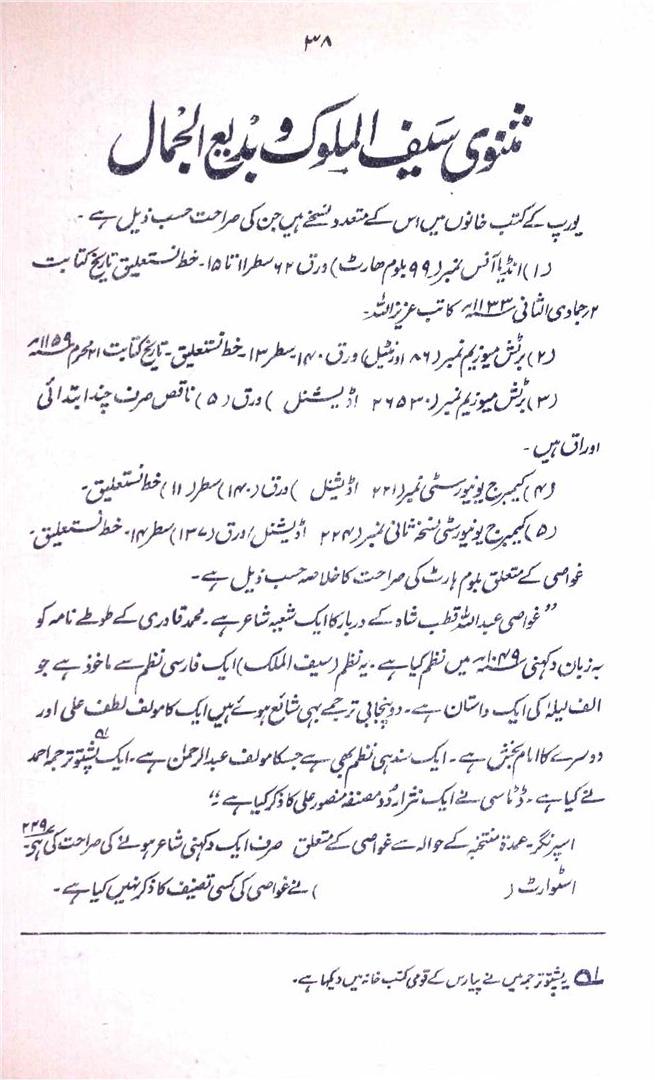 ۳۸
مثنوی سیف الملوک و بدیع الجمال
یورپ کے کتب خانوں میں اس کے متعدد نسخے ہیں جن کی صراحت حسب ذیل ہے ۔
(۱) انڈیا آفس نمبر (۹۹ بلوم ھارٹ) ورق ۶۲ سطر ۱۱ تا ۱۵ ۔ خط نستعلیق تاریخ کتابت
۲ ر جمادی الثانی ۱۱۳۳ھ کاتب عزیز اللہ ۔
(۲) برٹش میوزیم نمبر (۸۶ اورنٹیل) ورق ۱۴۰ سطر ۱۳ ۔ خط نستعلیق ۔ تاریخ کتابت ۲۱ محرم ۱۱۵۹ھ
(۳) برٹش میوزیم نمبر (۲۶۵۳۰ اڈیشنل ) ورق (۵) ناقص صرف چند ابتدائی
اوراق ہیں ۔
(۴) کیمبرج یونیورسٹی نمبر (۲۲۱ اڈیشنل ) ورق (۱۴۰) سطر (۱۱) خط نستعلیق ۔
(۵) کیمبرج یونیورسٹی نسخہ ثانی نمبر (۲۲۴ اڈیشنل) ورق (۱۳۷) سطر ۱۴ ۔ خط نستعلیق ۔
غواصی کے متعلق بلوم ہارٹ کی صراحت کا خلاصہ حسب ذیل ہے ۔
”غواصی عبد اللہ قطب شاہ کے دربار کا ایک شعبہ شاعر ہے ۔ محمد قادری کے طوطے نامہ کو
بہ زبان دکہنی ۱۰۴۹ھ میں نظم کیا ہے ۔ یہ نظم (سیف الملک) ایک فارسی نظم سے ماخوذ ہے جو
الف لیلہ کی ایک داستان ہے ۔ دو پنجابی ترجمے بہی شائع ہوئے ہیں ایک کا مولف لطف علی اور
دوسرے کا امام بخش ہے ۔ ایک سندہی نظم بھی ہے جسکا مولف عبد الرحمٰن ہے ۔ ایک پشتو ترجمہ ۱؎ احمد
نے کیا ہے ۔ ڈٹاسی نے ایک نثر اردو مصنفہ منصور علی کا ذکر کیا ہے ۔“
اسپرنگر ۔ عمدۃ منتخبہ کے حوالہ سے غواصی کے متعلق صرف ایک دکہنی شاعر ہونے کی صراحت کی ہی ۔ ۲۲۹
اسٹوارٹ ( ) نے غواصی کی کسی تصنیف کا ذکر نہیں کیا ہے ۔
۱؎ یہ پشتو ترجمہ میں نے پیارس کے قومی کتب خانہ میں دیکھا ہے ۔